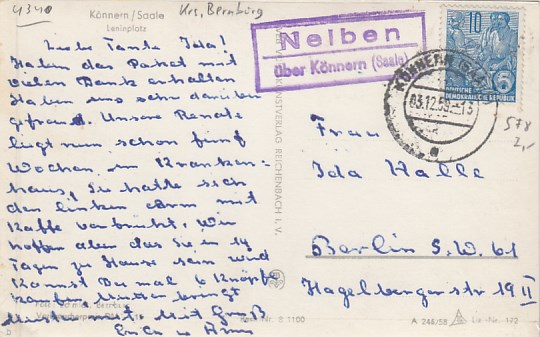 4340
Krs. Bernburg
Könnern / Saale
Leninplatz
Liebe Tante Ida!
Haben das Paket mit
vielen Dank erhalten
Haben uns sehr darüber
gefreut. Unsere Renate
liegt nun schon fünf
Wochen im Kranken-
haus, Sie hatte sich
den linken Arm mit
Kaffe verbrüht, Wir
hoffen aber das Sie in 14
Tagen zu Hause sein wird
Kannst Du mal 6 Knöpfe
kaufen Mutter bringt
Muster mit Mit Gruß
Erich u
KUNSTVERLAG REICHENBACH I. V.
Nelben
über Könnern (Saale)
KÖNNERN (SAALE)
03.12.59.-13
10
5
DEUTSCHE
DEMOKRATISCHE REPUBLIK
578
2,-
Frau
Ida Halle
Berlin S.W. 61
Hagelbergerstr 19 II
Best.-Nr. S 1100
A 244/58
Liz.-Nr. 192